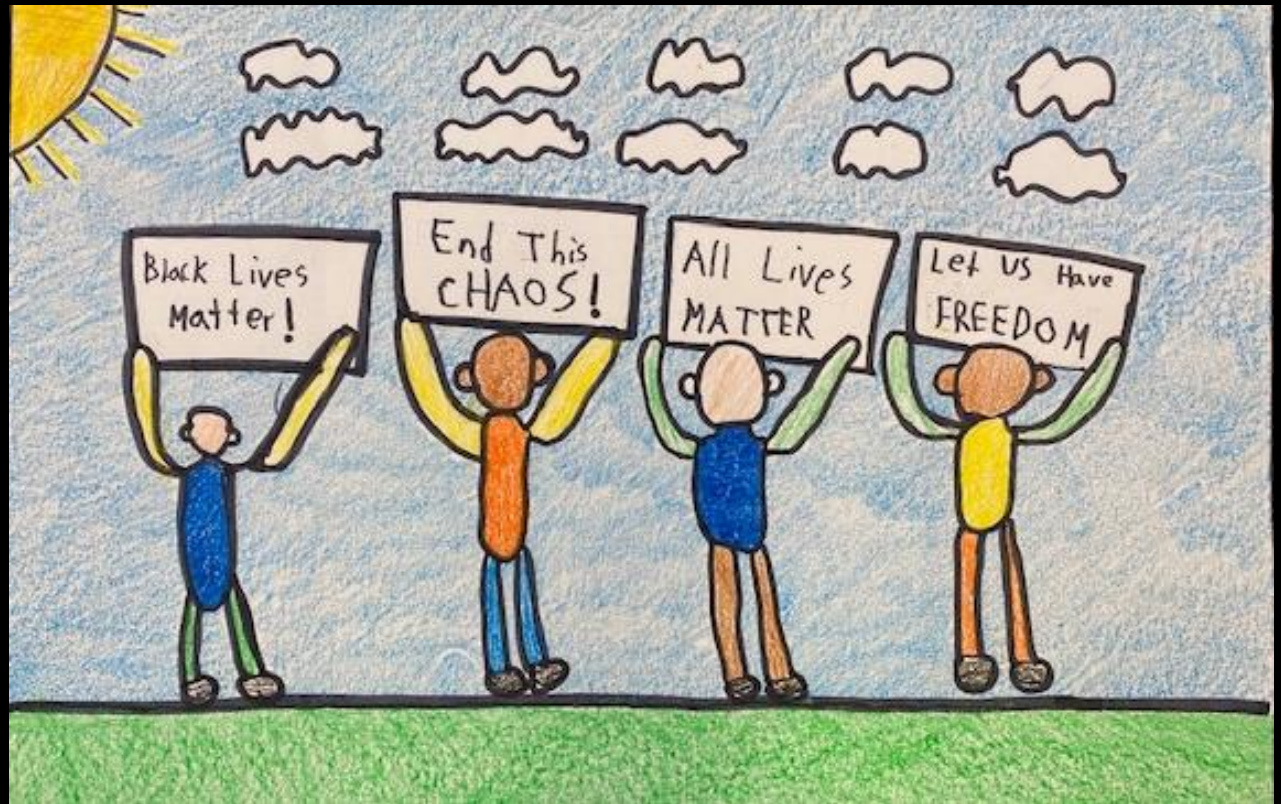 Black Lives
Matter!
End This
CHAOS!
All Lives
MATTER
Let US Have
FREEDOM